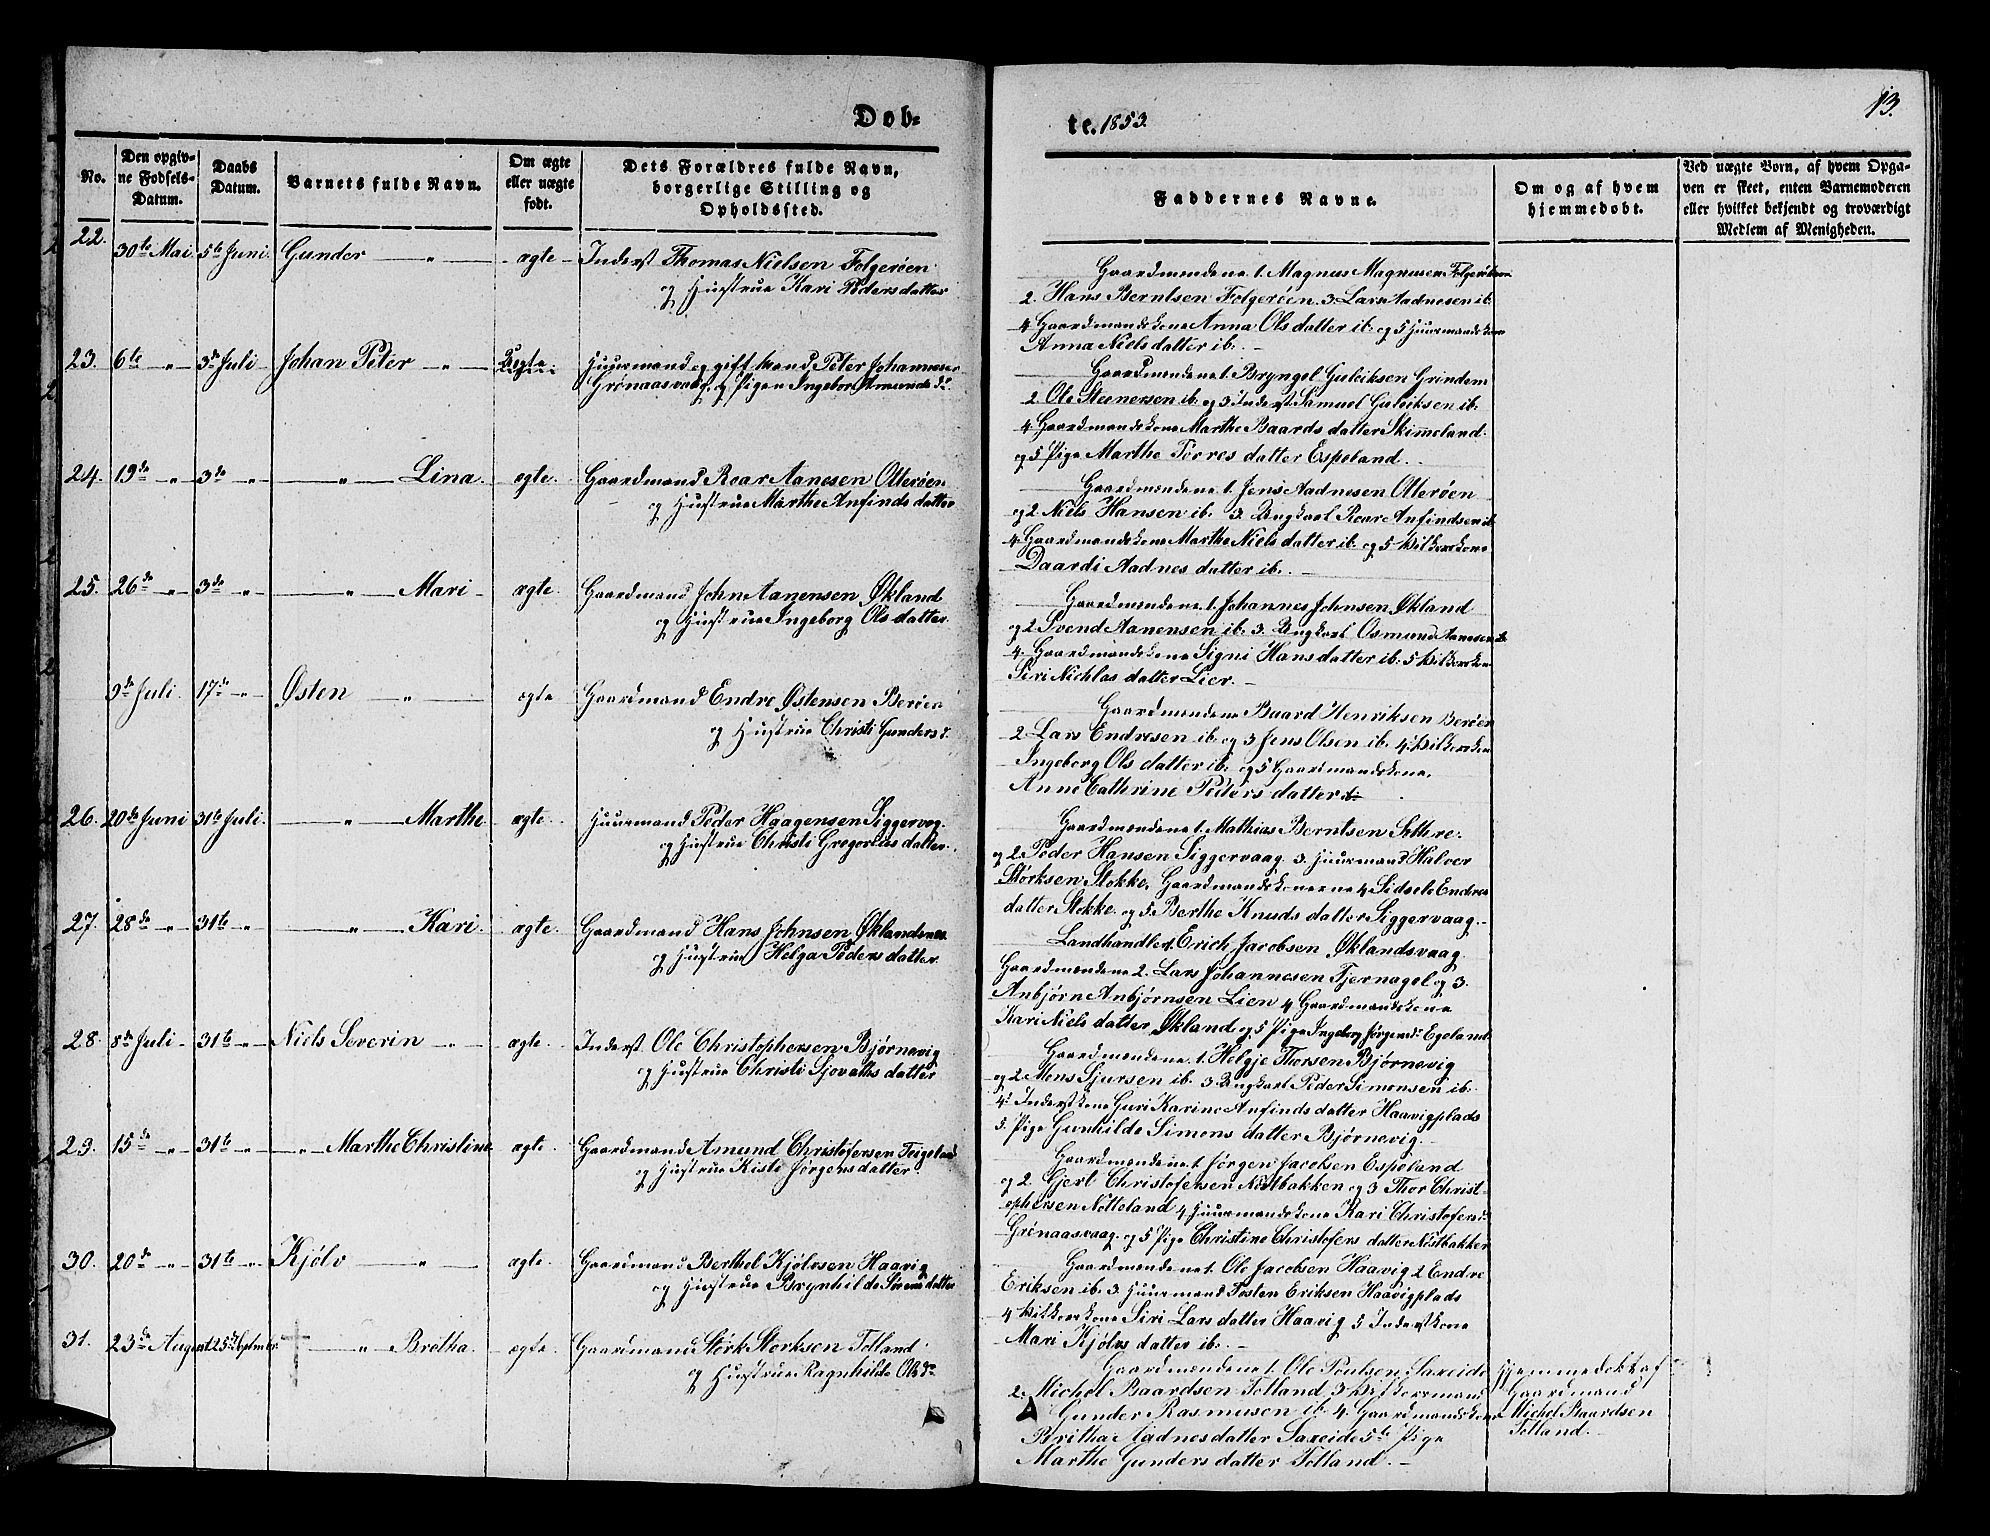 Døb-
No.
Den opgiv-
ne Fødsels-
Datum.
Daabs
Datum.
Barnets fulde Navn.
Om ægte
eller uægte
født.
Dets Forældres fulde Navn,
borgerlige Stilling og
Opholdssted.
22. 30te Mai 5te Juni Gunder — „ — ægte Inderst Thomas Nielsen Folgerøen
og Hustrue Kari Peders datter
23. 6te „ 3die Juli Johan Peter — „ — Huurmand og gift Mand Peter Johannesen
Grønaasvaag. og Pigen Ingebor Amunds dr
24. 19de „ 3de „ — „ — Lina. ægte. Gaardmand Roar Aanesen Otterøen
og Hustrue Marthe Anfinds datter
25. 26de „ 3de „ — „ — Mari ægte. Gaardmand John Aanensen Økland
og Hustrue Ingeborg Ols datter.
9de Juli 17de „ Østen — „ — ægte Gaardmand Endre Østensen Berøen
og Hustrue Christi Gunders d.
26. 20de Juni 31te Juli. — „ — Marthe ægte. Huurmand Peder Haagensen Siggervog
og Hustrue Christi Gregorius datter.
27. 28de „ 31te „ — „ — Kari. ægte. Gaardmand Hans Johnsen Øklandsnes
og Hustrue Helga Peders datter.
28. 8de Juli 31te „ Niels Severin „ ægte. Inderst Ole Christophersen Bjørnevig
og Hustrue Christi Sjovaths datter
29. 15de „ 31te „ — „ — Marthe Christine ægte. Gaardmand Amund Christofersen Teigeland
og Hustrue Kisti Jørgens datter.
30. 20de „ 31te „ Kjølv — „ — ægte. Gaardmand Berthel Kjølvsen Haavig
og Hustrue Brynhilde Sørens datter
31. 23de August 25de September — „ — Bretha. ægte. Gaardmand Størk Storksen Totland
og Hustrue Ragnhilde Ols dr
te. 1853.
13.
Faddernes Navne.
Om og af hvem
hjemmedøbt.
Ved uægte Børn, af hvem Opga-
ven er skeet, enten Barnemoderen
eller hvilket bekjendt og troværdigt
Medlem af Menigheden.
Gaardmendene 1. Magnus Magnusen Folgerøen
2. Hans Berntsen Folgerøen. 3. Lars Aadnesen ib.
4 Gaardmandskone Anna Ols datter ib. og 5 Huurmandskone
Anna Niels datter ib. —
Gaardmendene 1. Bryngel Guleiksen Grindem
2. Ole Steenersen ib. og 3 Inderst Samuel Guleiksen ib.
4. Gaardmandskone Marthe Baards datter Skimeland.
og 5 Pige Marthe Torres datter Espeland.
Gaardmendene 1. Jens Aadnesen Otterøen
og 2 Niels Hansen ib. 3. Ungkarl Roar Anfindsen ib
4. Gaardmandskone Marthe Niels datter ib. og 5 Vilkerskone
Daardi Aadnes datter ib.
Gaardmendene 1. Johannes Johnsen Økland
og 2 Svend Aanensen ib. 3. Ungkarl Osmund Aanesen ib
4. Gaardmandskone Signi Hans datter ib. 5 Vilkerskone
Siri Nichlas datter Lier. —
Gaardmendene Baard Henriksen Berøen
2. Lars Endresen ib. og 3 Jens Olsen ib. 4 Vilkerskone
Ingeborg Ols datter ib. og 5 Gaardmandskone
Anne Cathrine Peders datter
Gaardmendene 1. Mathias Berntsen Sættre.
og 2 Peder Hansen Siggervaag. 3. Huurmand Halvor
Størksen Stokke, Gaardmandskonerne 4 Sidsele Endres
datter Stokke. og 5. Berthe Knuds datter Siggervaag.
Landhandler Erich Jacobsen Øklandsvaag.
Gaardmendene 2. Lars Johannesen Tjernagel og 3.
Anbjørn Anbjørnsen Lien 4 Gaardmandskone
Kari Niels datter Økland og 5 Pige Ingeborg Jørgensdr Egeland.
Gaardmendene 1. Helgje Thorsen Bjørnevig
og 2 Mons Sjursen ib. 3. Ungkarl Peder Simonsen ib.
4. Inderstkone Guri Karine Anfinds datter Haavigplads
5. Pige Gunhilde Simons datter Bjørnevig.
Gaardmendene 1. Jørgen Jacobsen Espeland
og 2. Gjert Christofersen Nøstbakken og 3 Thor Christ-
ophersen Notteland 4 Huurmandskone Kari Christofers d.
Grønaasvaag. og 5 Pige Christine Christofers datter Nøstbakken
Gaardmendene 1. Ole Jacobsen Haavig 2 Endre
Eriksen ib. 3. Huurmand Tosten Eriksen Haavigplads
4 Vilkerskone Siri Lars datter Haavig 5 Inderstkone
Mari Kjølvs datter ib. —
Gaardmendene 1. Ole Poulsen Saxeide
2. Michel Baardsen Totland 3 Vilkersmand
Gunder Rasmusen ib. 4. Gaardmandskone
Britha Aadnesdatter Saxeide 5te Pige
Marthe Gunders datter Totland. —
Hjemmedøbt af
Gaardmand
Michel Baardsen
Totland.